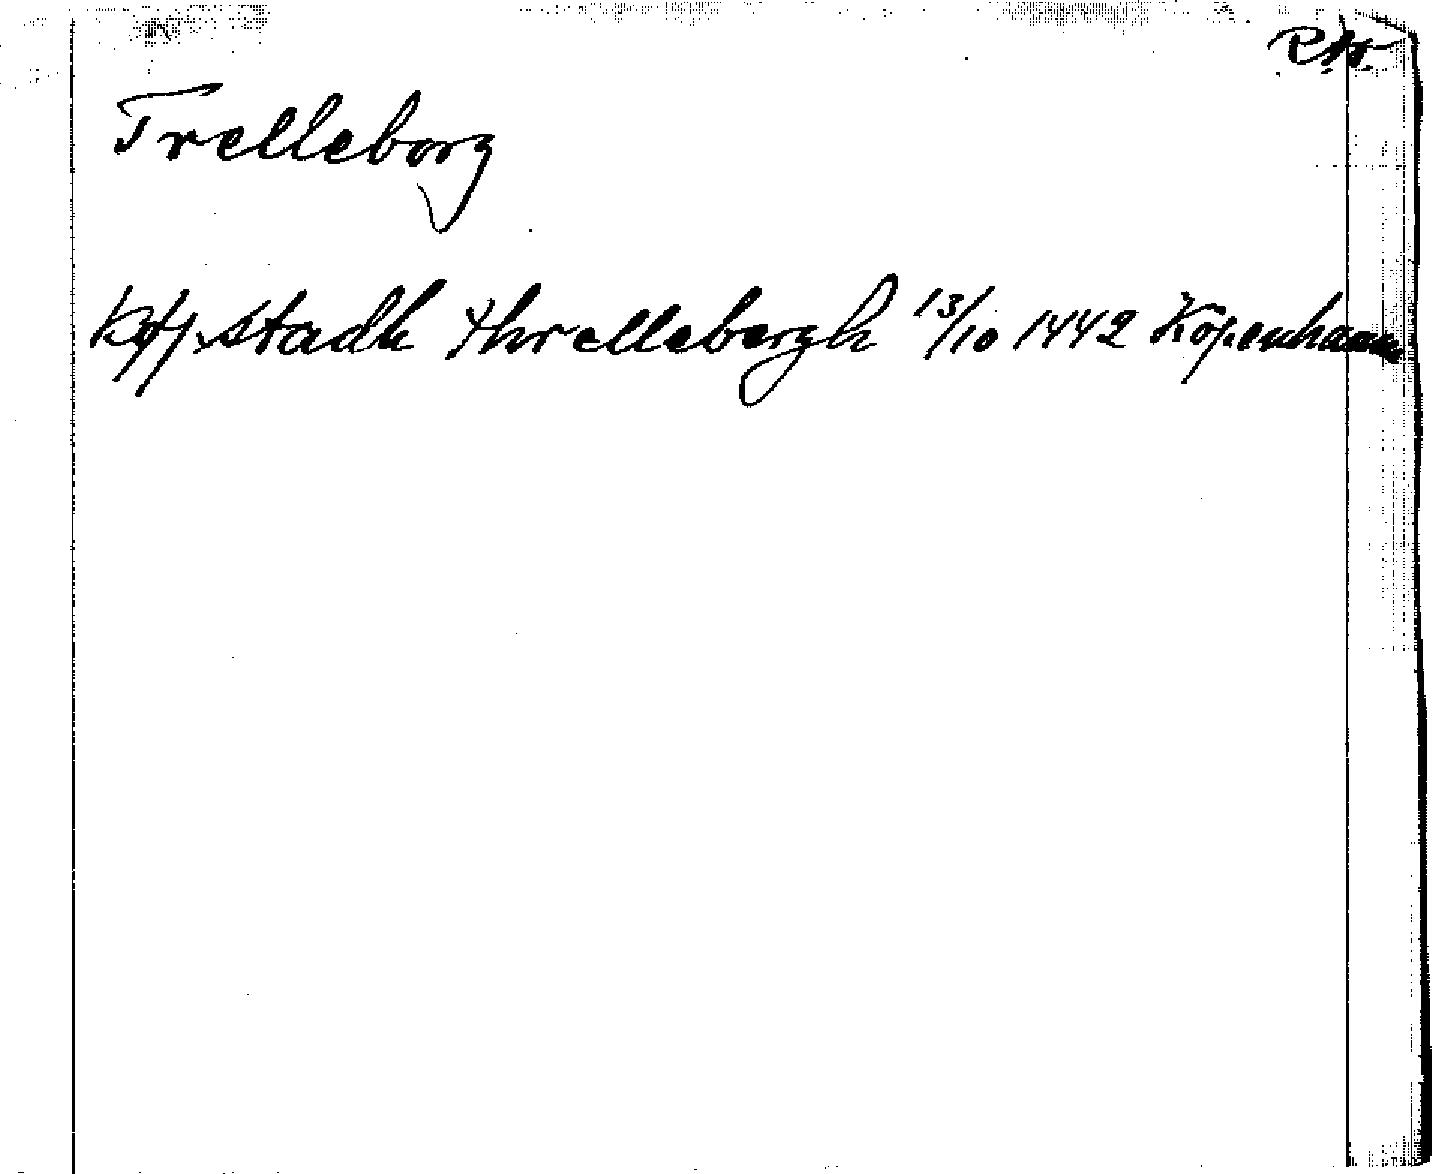 RAP.
Trelleborg
Køpstadh threllebergh 13/10 1442 Köpenhamn